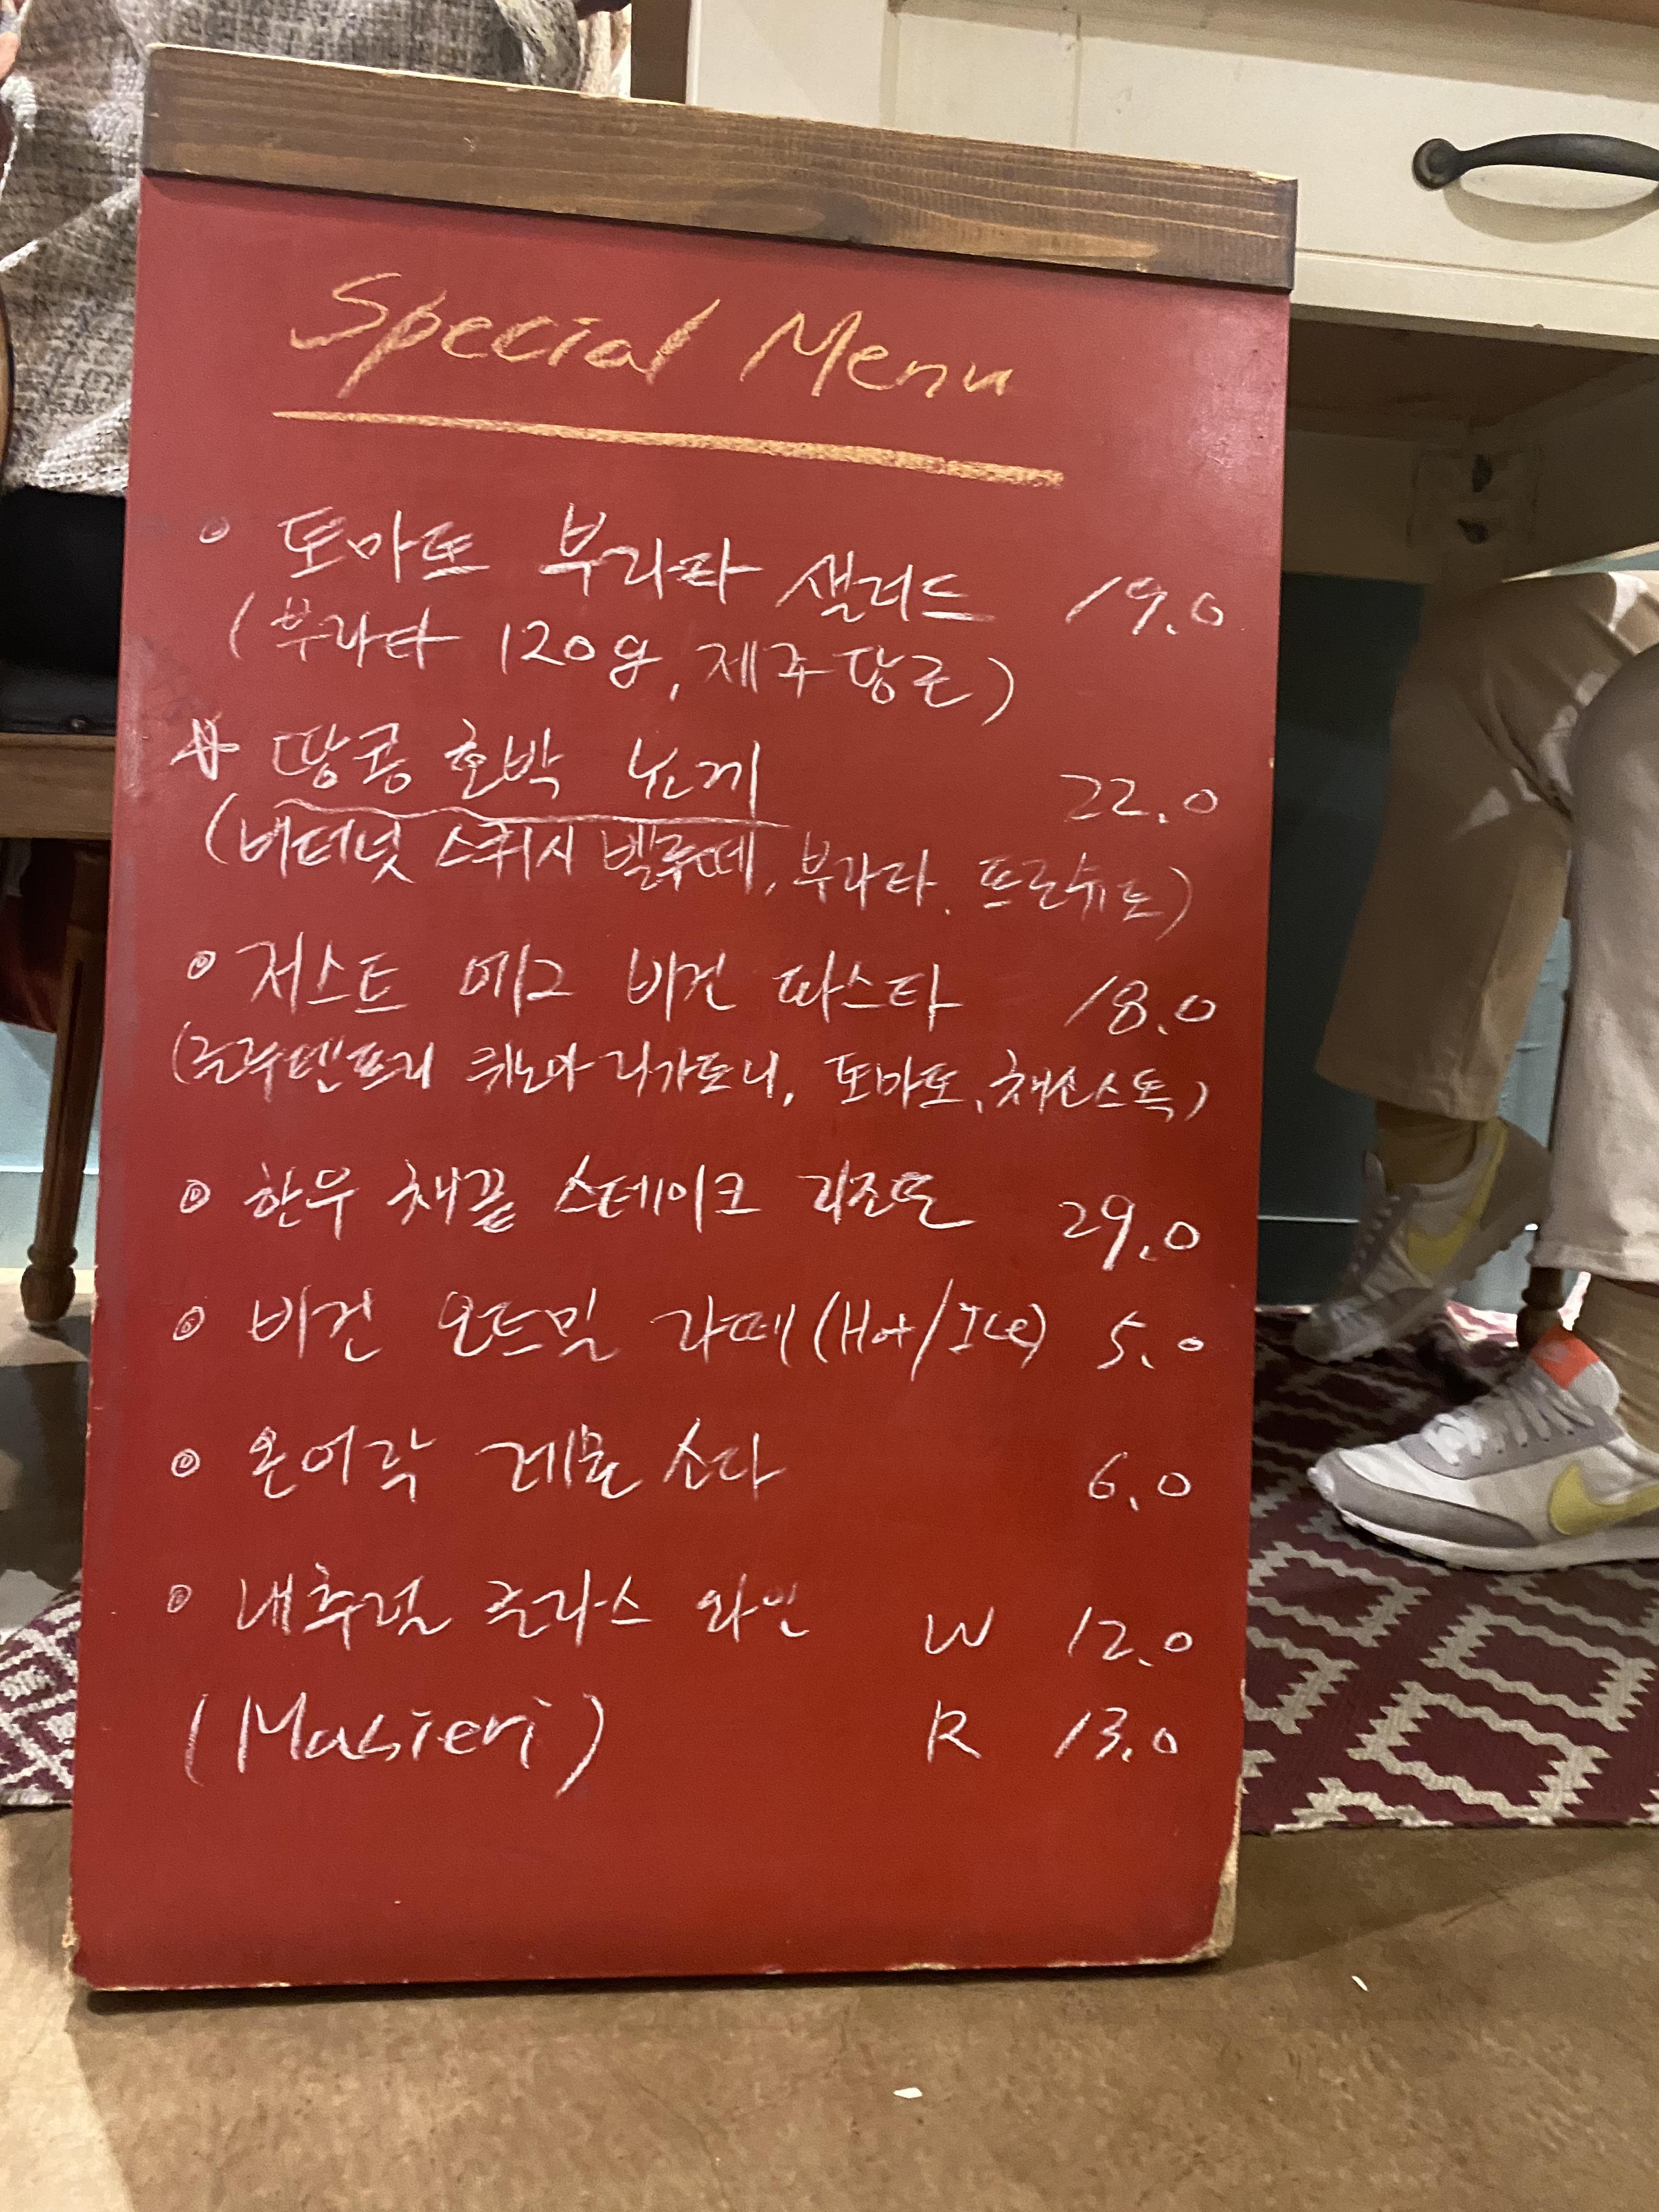 Special Menu
토마토 부라타 샐러드 19.0
(부라타 120g, 제주당근)
땅콩호박 뇨끼 22.0
(버터넛 스쿼시 벨루떼, 부라타, 프로슈토)
저스트 에그 비건 파스타 18.0
(글루텐프리 퀴노아 리가토니, 토마토, 채소스톡)
한우 채끝 스테이크 리조또 29.0
비건 오트밀 라떼(Hot/Ice) 5.0
온어락 레몬 소다 6.0
내추럴 글라스 와인 W 12.0
(Masieri) R 13.0